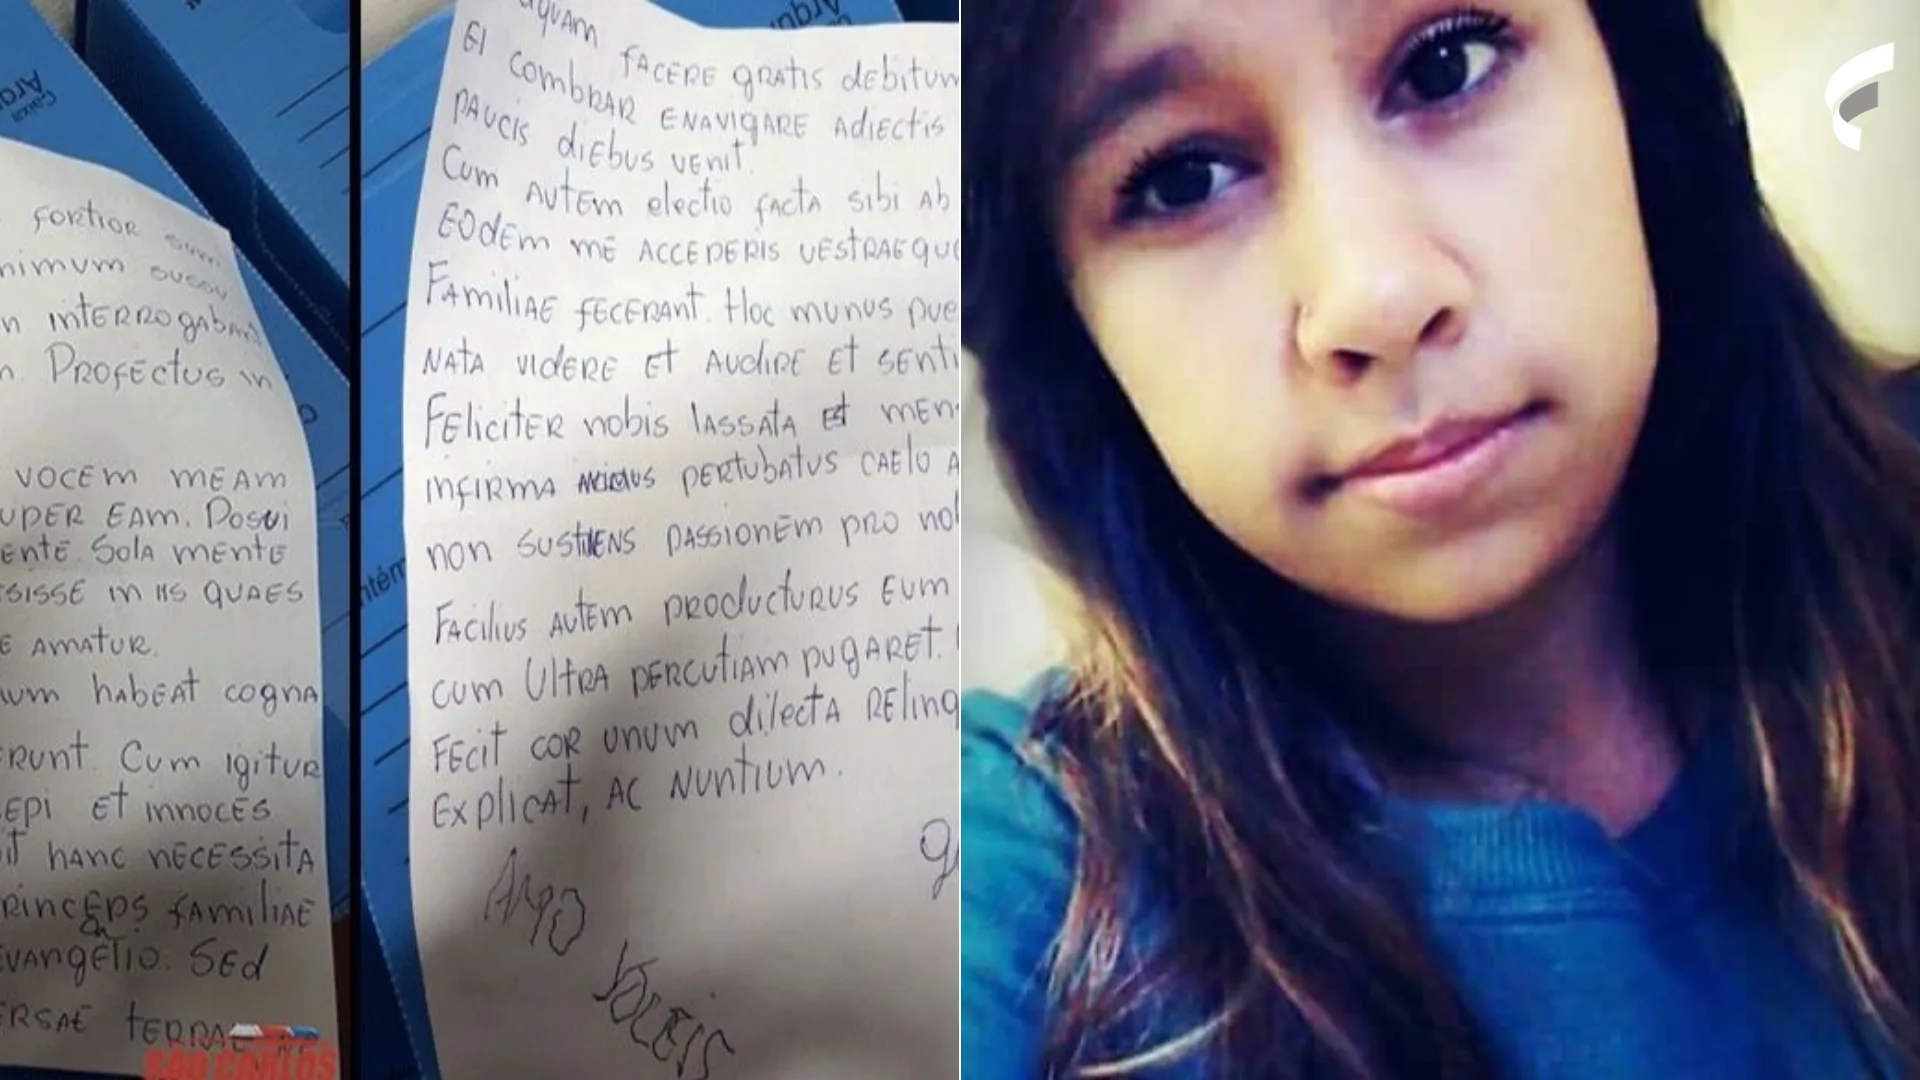 FORTIOR SUM
INTERROGABANT
PROFECTUS IN
VOCEM MEAM
UPER EAM. POSUI
ENTE. SOLA MENTE
SISSE IN IIS QUAES
E AMATUR.
UM HABEAT COGNA
RUNT. CUM IGITUR
EPI ET INNOCES
IT HANC NECESSITA
RINCEPS FAMILIAE
VANGELIO. SED
ERSAE TERRAE
SÃO CARLOS
QUAM FACERE GRATIS DEBITUM
EI COMBRAR ENAVIGARE ADIECTIS
PAUCIS DIEBUS VENIT.
CUM AUTEM ELECTIO FACTA SIBI AB
EODEM ME ACCEPERIS VESTRAEQUE
FAMILIAE FECERANT. HOC MUNUS PUE
NATA VIDERE ET AUDIRE ET SENTI
FELICITER NOBIS LASSATA ET MEN
INFIRMA PERTUBATUS CAELO A
NON SUSTIENS PASSIONEM PRO NOB
FACILIUS AUTEM PRODUCTURUS EUM
CUM ULTRA PERCUTIAM PUGARET.
FECIT COR UNUM DILECTA RELINQ
EXPLICAT, AC NUNTIUM.
Caixa
Arqu
ntém